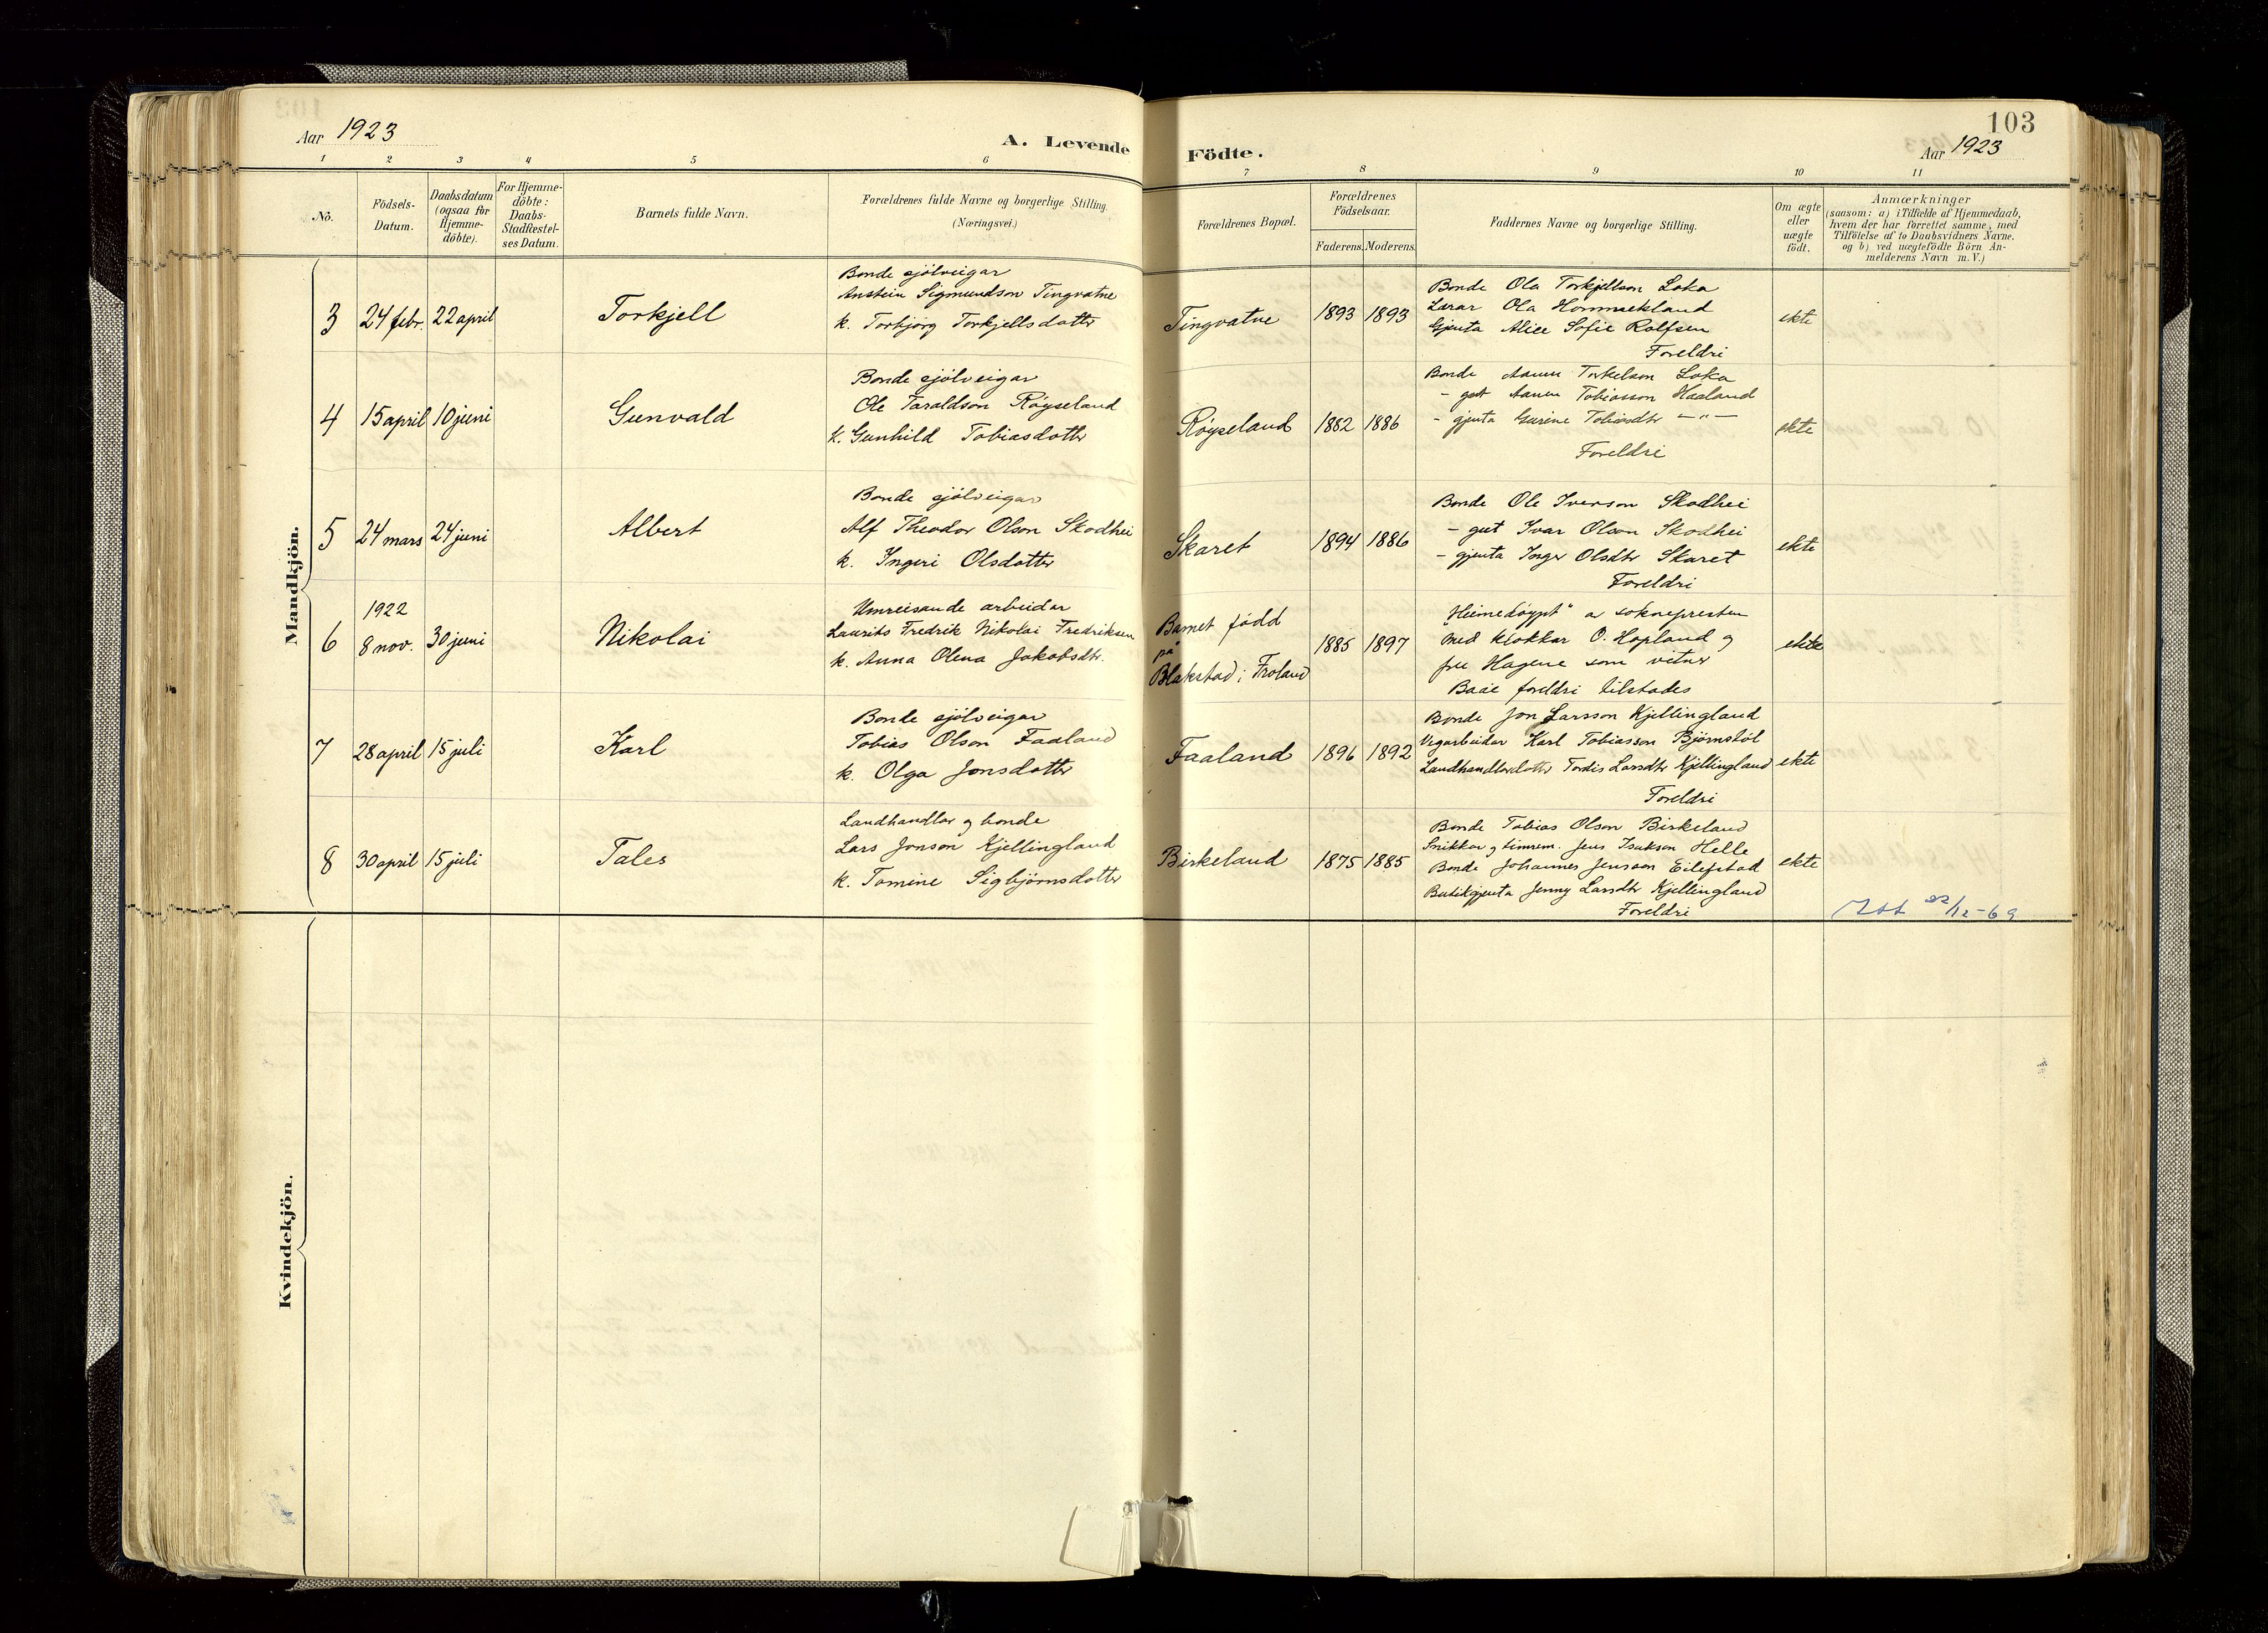 103
Aar 1923
A. Levende Födte.
Aar 1923
1 2 3 4 5 6 7 8 9 10 11
No.
Födsels-
Datum.
Daabsdatum
(ogsaa for
Hjemme-
döbte).
For Hjemme-
döbte:
Daabs-
Stadfæstel-
ses Datum.
Barnets fulde Navn.
Forældrenes fulde Navne og borgerlige Stilling.
(Næringsvei.)
Forældrenes Bopæl.
Forældrenes
Födselsaar.
Faderens. Moderens.
Faddernes Navne og borgerlige Stilling.
Om ægte
eller
uægte
födt.
Anmærkninger
(saasom: a) i Tilfælde af Hjemmedaab,
hvem der har forrettet samme, med
Tilföielse af to Daabsvidners Navne,
og b) ved uægtefödte Börn An-
melderens Navn m. V.)
Mandkjön.
3 24 febr. 22 april
Torkjell
Bonde sjölveigar
Anstein Sigmundson Tingvatne
k. Torbjörg Torkjellsdotter
Tingvatne
1893 1893
Bonde Ola Torkjellson Loka
Lærar Ola Hommekland
Gjenta Alice Sofie Rolfsen
Foreldri
ekte
4 15 april 10 juni
Gunvald
Bonde sjölveigar
Ole Taraldson Röyseland
k. Gunhild Tobiasdotter
Röyseland
1882 1886
Bonde Aanen Torkelson Loka
- gut Aanen Tobiasson Haaland
- gjenta Gurine Tobiasdtr — " —
Foreldri
ekte
5 24 mars 24 juni
Albert
Bonde sjölveigar
Alf Theodor Olson Skodhei
k. Ingeri Olsdotter
Skaret
1894 1886
Bonde Ole Iverson Skodhei
- gut Ivar Olson Skodhei
- gjenta Inger Olsdtr Skaret
Foreldri
ekte
1922
6 8 nov. 30 juni
Nikolai
Umreisande arbeidar
Laurits Fredrik Nikolai Fredriksen
k. Anna Olena Jakobsdtr.
Barnet född
på
Blakstad i Froland
1885 1897
"Heimedöypt" a soknepresten
med klokkar O. Hopland og
fru Hagene som vitner
Baae foreldri tilstades
ekte
7 28 april 15 juli
Karl
Bonde sjölveigar
Tobias Olson Faaland
k. Olga Jonsdotter
Faaland
1896 1892
Bonde Jon Larsson Kjellingland
Vegarbeidar Karl Tobiasson Björnstöl
Landhandlardotter Tordis Larsdtr Kjellingland
Foreldri
ekte
8 30 april 15 juli
Tales
Landhandlar og bonde
Lars Jonson Kjellingland
k. Tomine Sigbjörnsdotter
Birkeland
1875 1885
Bonde Tobias Olson Birkeland
Snikkar og timrem. Jens Isakson Helle
Bonde Johannes Jensson Eilefstad
Butikgjenta Jenny Larsdtr Kjellingland
Foreldri
ekte
22/12-69
Kvindekjön.